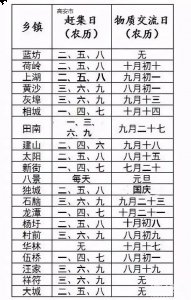 高安市
乡镇 赶集日（农历） 物质交流日（农历）
蓝坊 二、五、八 无
荷岭 二、五、八 十月初十
上湖 二、五、八 八月初一
黄沙 三、六、九 八月初一
灰埠 三、六、九 九月十三
相城 一、四、七 十月十四
田南 一、三、六、九 九月二十七
建山 二、四、六 九月十八
太阳 二、五、八 八月十五
新街 一、四、七 十月二十
八景 每天 元旦
独城 二、五、八 国庆
石脑 三、六、九 九月二十三
龙潭 一、四、七 十月二十一
杨圩 二、五、八 十月初八
村前 三、六、九 八月初九
华林 无 十月十七
伍桥 一、四、七 八月初一
汪家 三、六、九 八月十九
祥符 三、六、九 无
大城 二、五、八 无